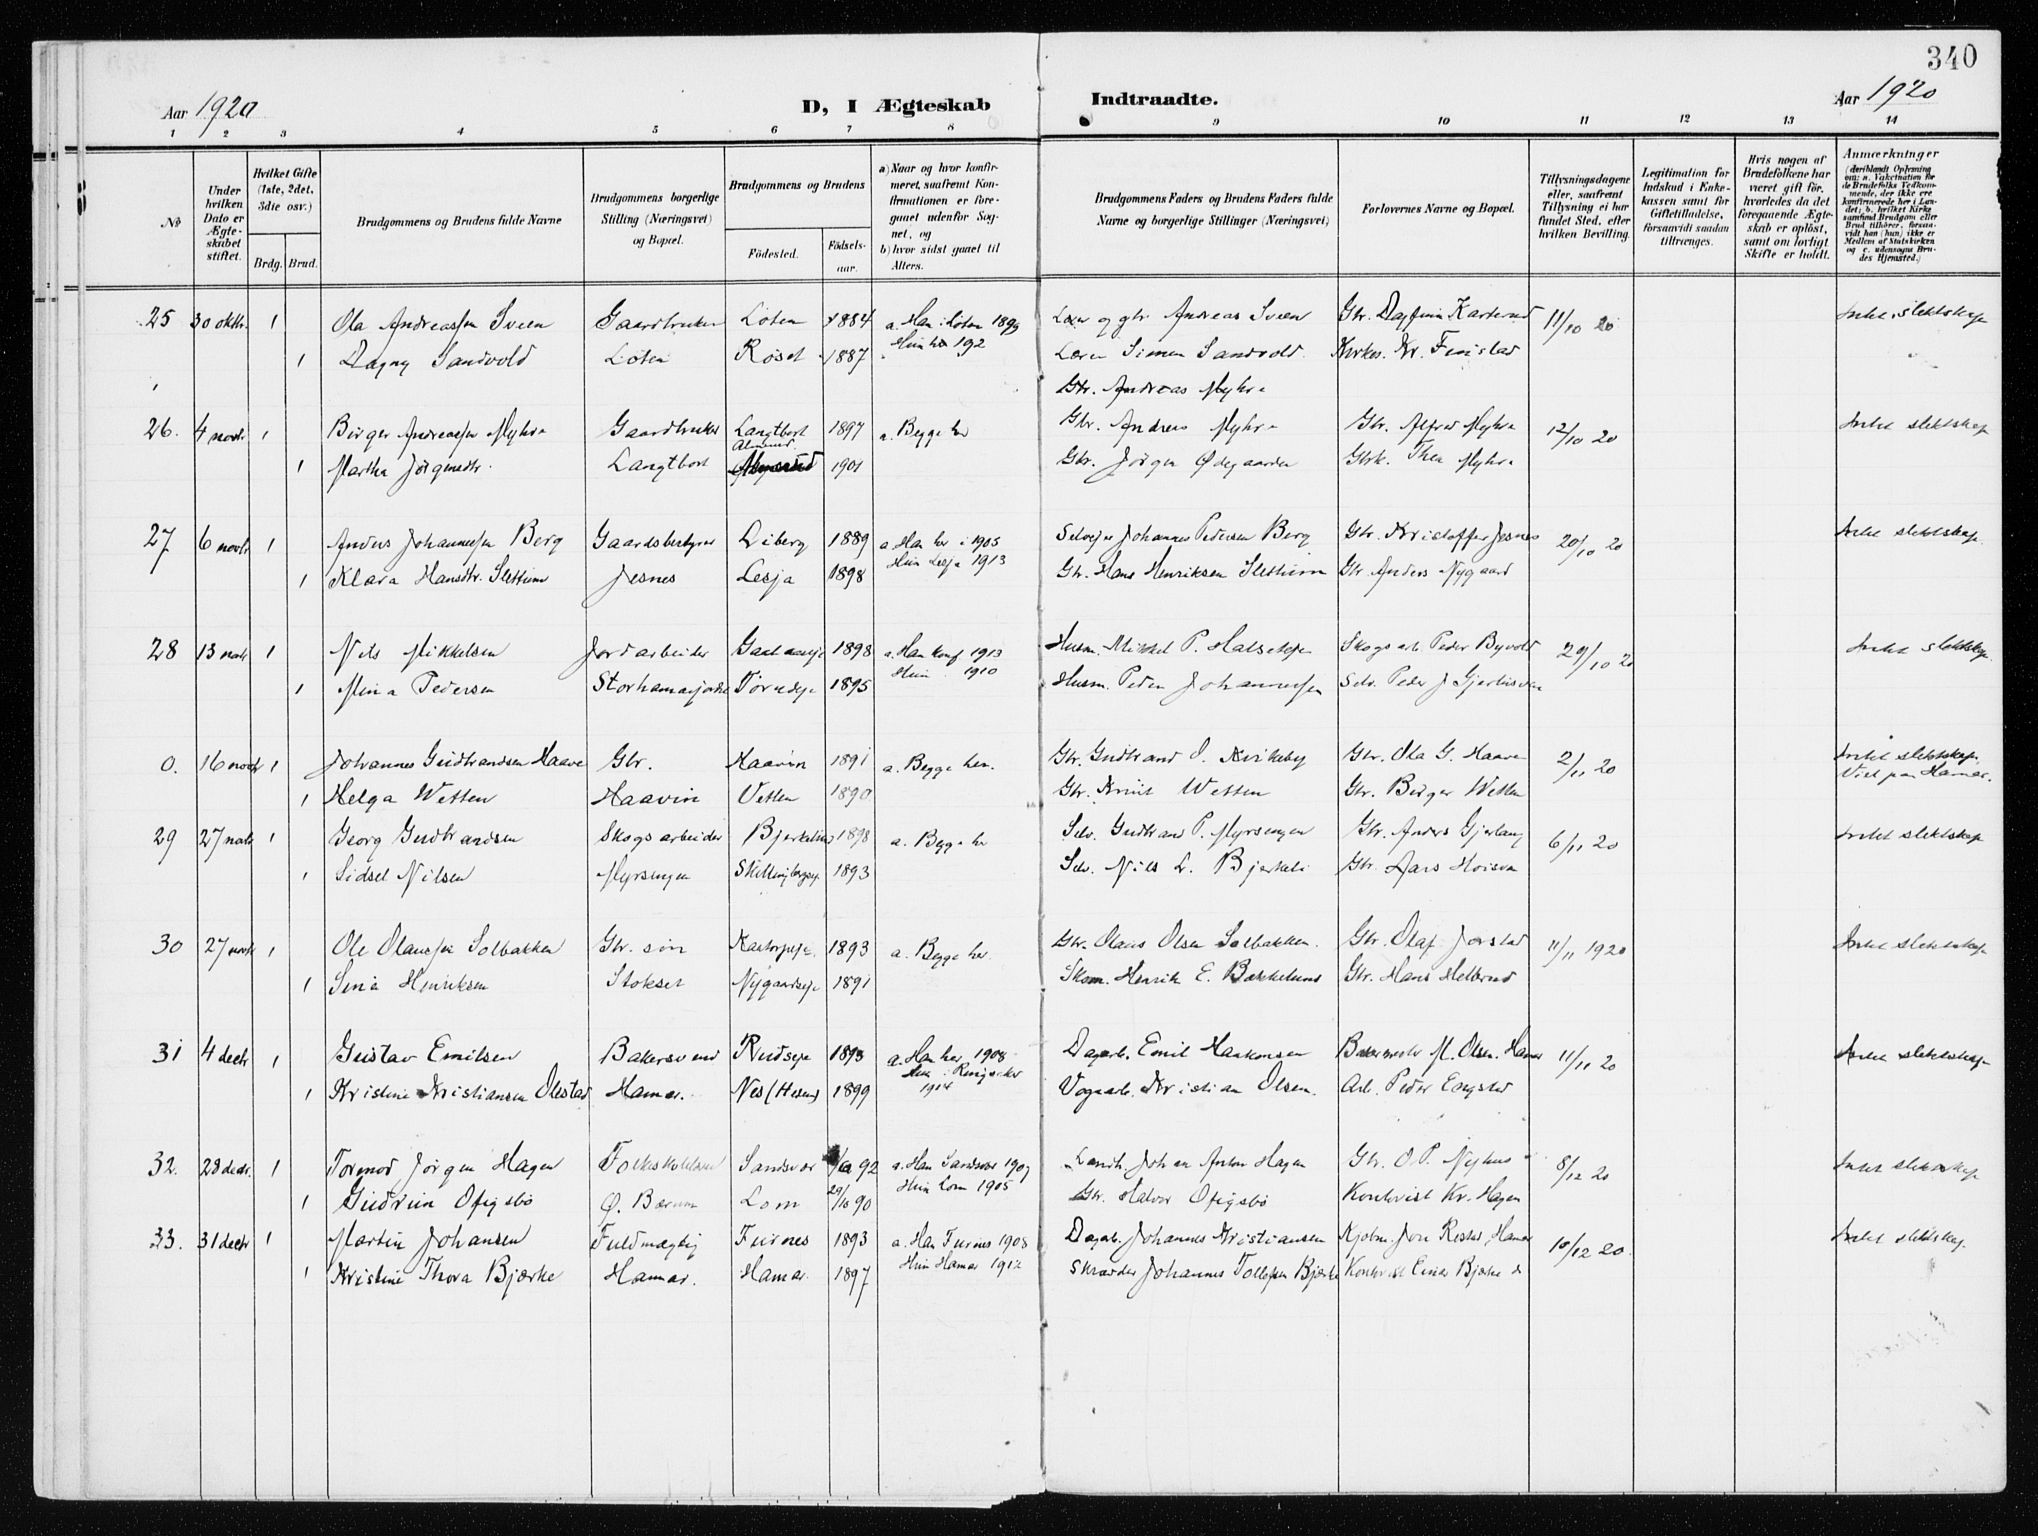 340
Aar 1920 D, I Ægteskab Indtraadte. Aar 1920
1 2 3 4 5 6 7 8 9 10 11 12 13 14
No
Under hvilken Dato er Ægteskabet stiftet.
Hvilket Gifte (1ste, 2det, 3die osv.)
Brdg. Brud.
Brudgommens og Brudens fulde Navne
Brudgommens borgerlige Stilling (Næringsvei) og Bopæl.
Brudgommens og Brudens
Fødested. Fødselsaar.
a) Naar og hvor konfirmeret, saafremt Konfirmationen er foregaaet udenfor Sognet, og
b) hvor sidst gaaet til Alters.
Brudgommens Faders og Brudens Faders fulde Navne og borgerlige Stillinger (Næringsvei)
Forlovernes Navne og Bopæl.
Tillysningsdagene eller, saafremt Tillysning ei har fundet Sted, efter hvilken Bevilling.
Legitimation for Indskud i Enkekassen samt for Giftetilladelse, forsaavidt saadan tiltrænges.
Hvis nogen af Brudefolkene har været gift før, hvorledes da det foregaaende Ægteskab er opløst, samt om lovligt Skifte er holdt.
Anmærkninger (deriblandt Oplysning om: a. Vakcination for de Brudefolks Vedkommende, der ikke ere konfirmerede her i Landet; b. hvilket Kirkesamfund Brudgom eller Brud tilhører, forsaavidt han (hun) ikke er Medlem af Statskirken og c. udensogns Brudes Hjemsted.)
25 30 oktbr. 1 Ola Andreassen Sveen Gaardbruker Løten 1884 a. Han i Løten 1899 Lærer og gbr. Andreas Sveen Gbr. Dagfinn 11/10 20 Intet slektskap
1 Dagny Sandvold Løten Røset 1887 Hun her 192 Lærer Simen Sandvold. Kirkes. Kr. Finstad
Gbr. Andreas Myhre
26. 4 novbr 1 Birger Andreassen Myhre Gaardbruker Langtbort 1897 a. Begge her Gbr. Andreas Myhre Gbr. Alfred Myhre 12/10 20 Intet slektskap
1 Martha Jørgensdtr. Langtbort 1901 Gbr. Jørgen Ødegaarden Gbrk. Thea Myhre
27 6 novbr 1 Anders Johannessen Berg Gaardsbestyrer Liberg 1889 a. Han her i 1905 Selveier Johannes Pedersen Berg Gbr. Kristoffer Jesnes 20/10 20 Intet slektskap
1 Klara Hansdtr. Slettum Jesnes Lesja 1898 Hun Lesja 1913 Gbr. Hans Henriksen Slettum Gbr Anders Nygaard
28 13 novbr 1 Nils Mikkelsen Jordarbeider 1898 a. Han konf 1913 Husm. Mikkel P. Skogsarb Peder Byvold 29/10 20 Intet slektskap
1 Mina Pedersen 1895 Hun 1910 Husm. Peder Johannessen Selv. Peder J
0. 16 novbr 1 Johannes Gudbrandsen Haave Gbr. Haavin 1891 a. Begge her. Gbr Gudbrand O. Kirkeby Gbr. Ola G. Haave 2/11 20 Intet slektskap.
Viet paa Hamar.
1 Helga Wetten Haavin Vetten 1890 Gbr. Knut Wetten Gbr. Birger Wetten
29 27 novbr 1 Georg Gudbrandsen Skogsarbeider 1898 a. Begge her Selv. Gudbrand P. Myrsengen Gbr. Anders Gjerlaug 6/11 20 Intet slektskap
1 Sidsel Nilsen Myrsengen 1893 Selv. Nils L. Bjerkeli Gbr. Lars
30 27 novbr 1 Ole Olaussen Solbakken Gbr. søn 1893 a. Begge her. Gbr. Olaus Olsen Solbakken. Gbr. Olaf Jorstad 11/11 1920 Intet slektskap
1 Sina Henriksen Stokset Nygaardseje 1891 Skom. Henrik E. Bækkelund Gbr. Hans
31 4 decbr 1 Gustav Emilsen Bakersvend Rudseje 1893 a. Han her 1908 Dagarb. Emil Haakensen Bakermester M. Olsen. Hamar 11/11 20 Intet slektskap
Hun i Ringsaker
1914
1 Kristine Kristiansen Olestad Hamar. Nes (Hedm) 1899 Vognarb. Kristian Olsen. Arb. Peder Engstad
32. 28 decbr. 1 Tormod Jørgen Hagen Sandsvær 92 a. Han Sandsvær 1907 Landh. Johan Anton Hagen Gbr. O. P. Nyhus 8/12 20 Intet slektskap
1 Gudrun Ofigsbø Ø. Bærum Lom 29/10 90 Hun Lom 1905 Gbr. Halvor Ofigsbø Kontorist Kr. Hagen
33. 31 decbr 1 Martin Johansen Fuldmægtig Furnes 1893 a. Han Furnes 1908 Dagarb. Johannes Kristiansen Kjøbm. Hamar 10/12 20. Intet slektskap.
1 Kristine Thora Bjærke Hamar. Hamar. 1897 Hun Hamar 1912 Skrædder Johannes Tollefsen Bjærke Kontorist Einar Bjærke